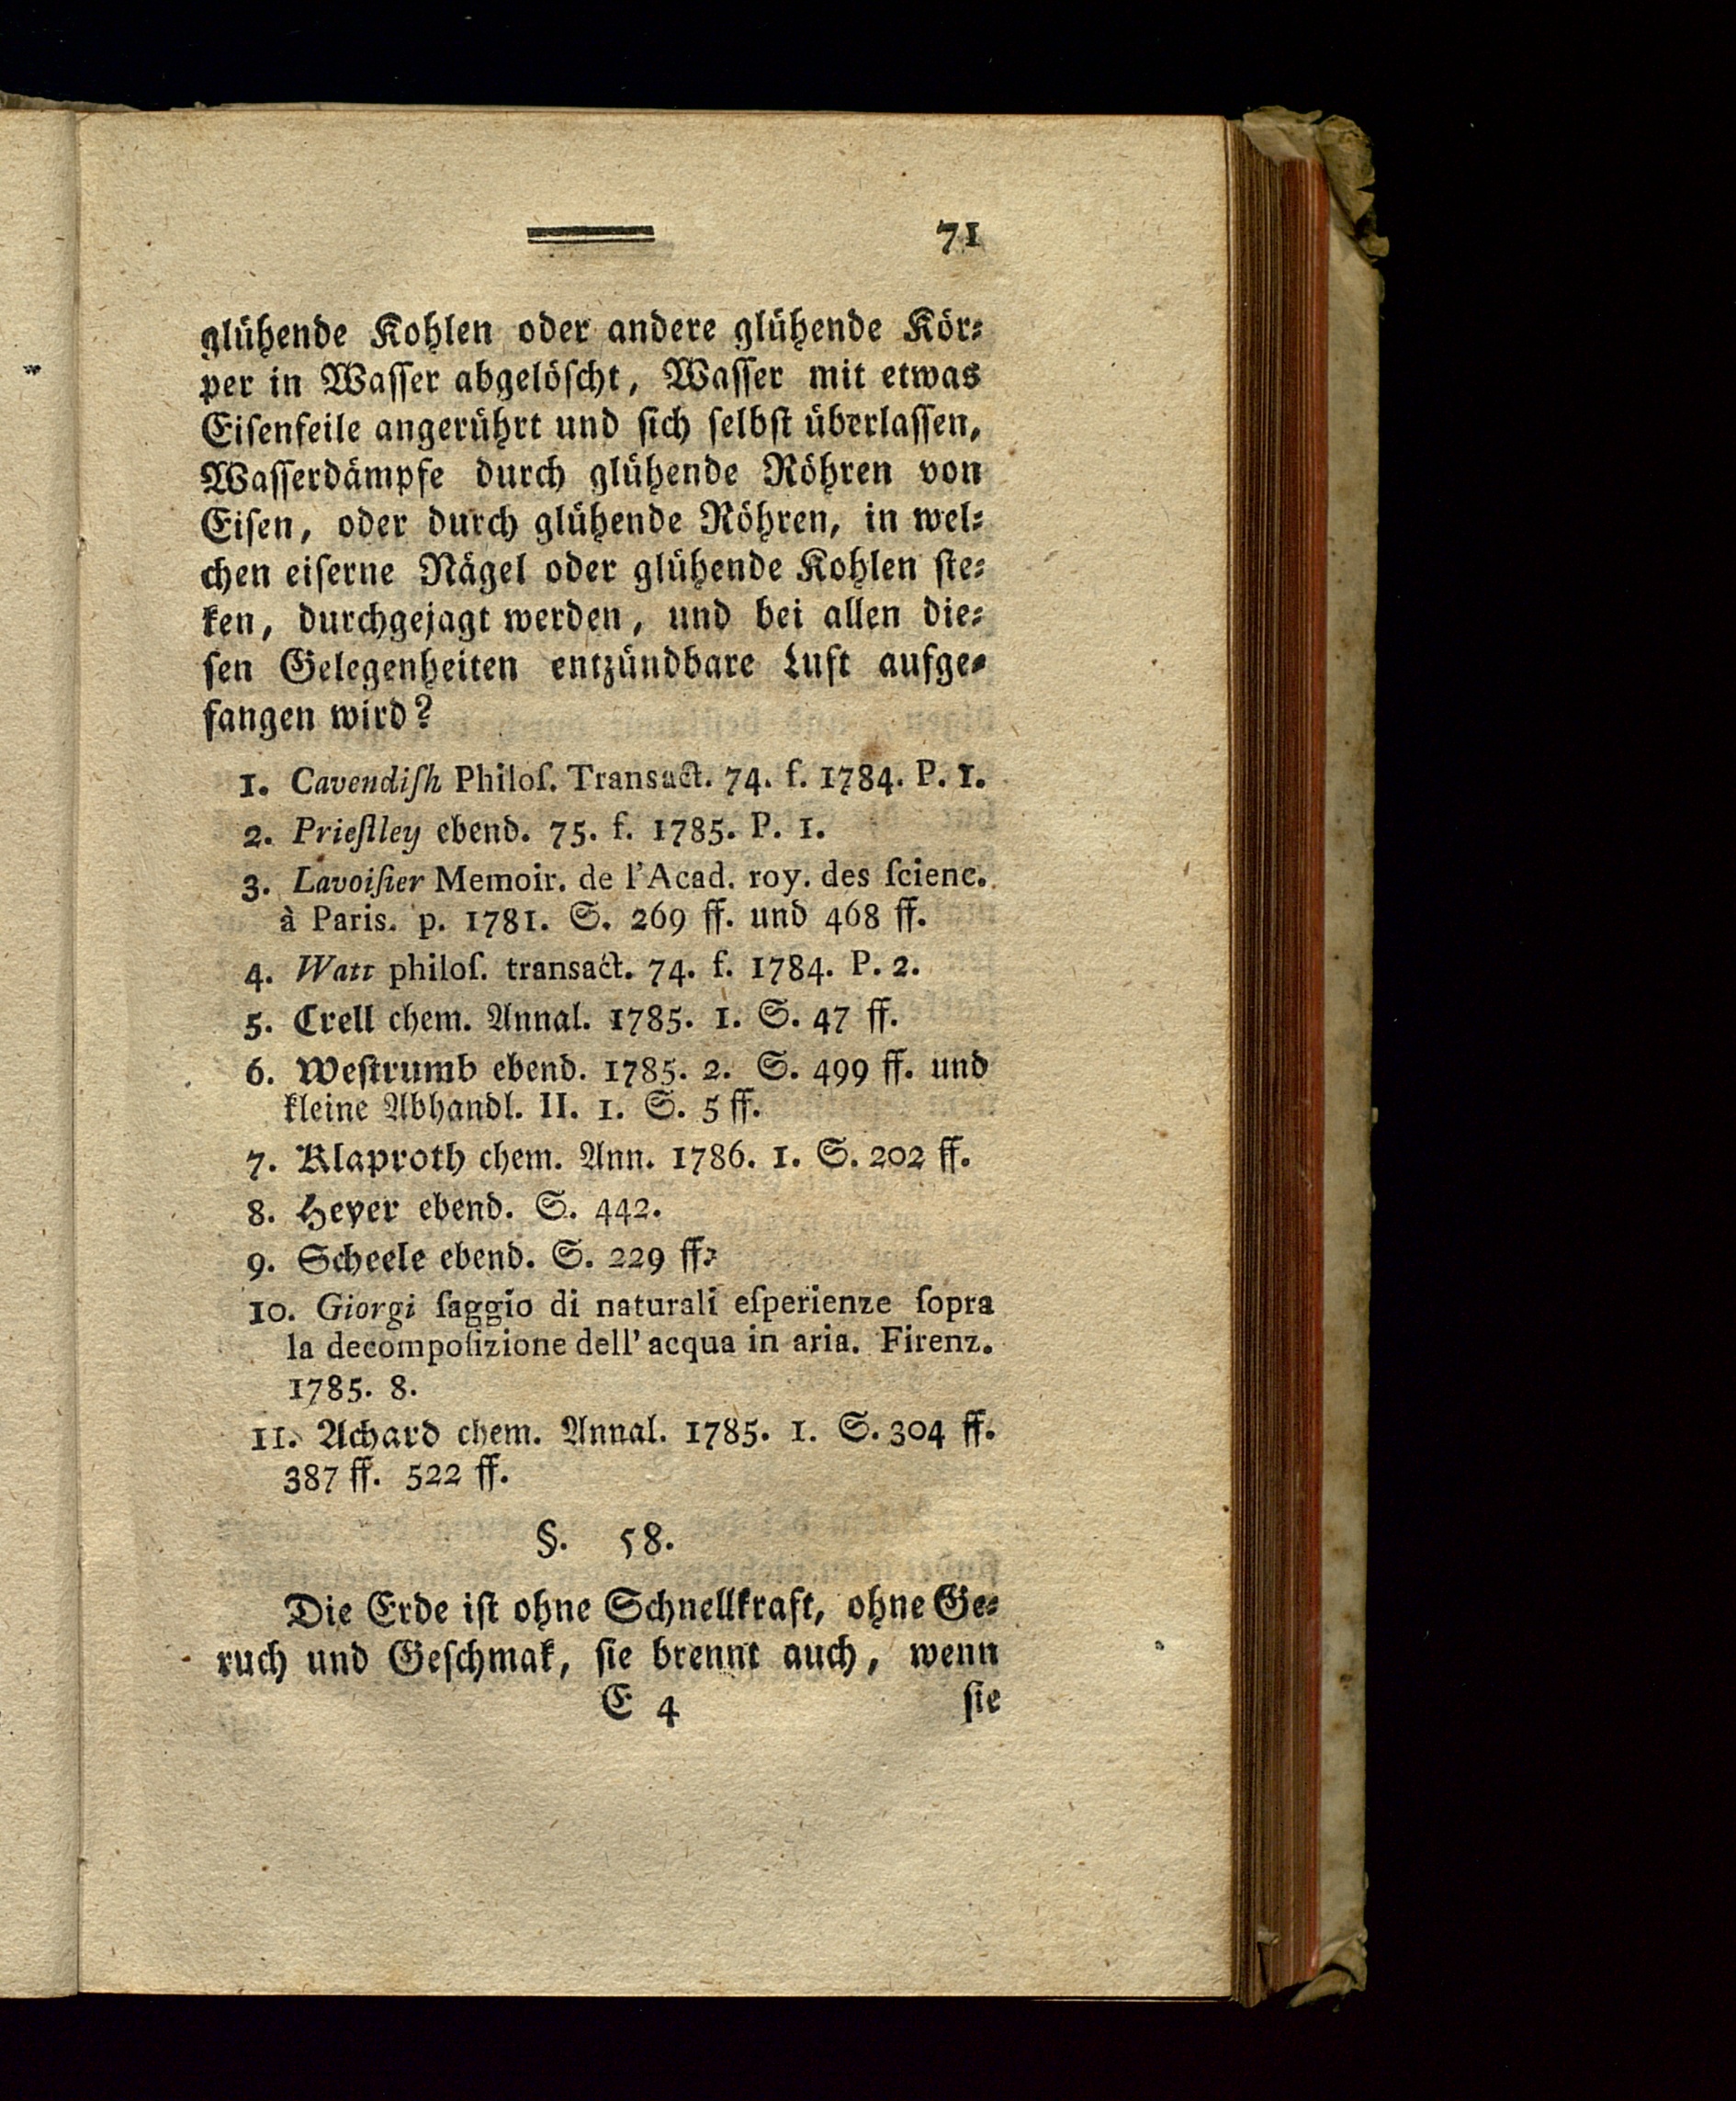 71
glühende Kohlen oder andere glühende Kör⸗
per in Waſſer abgelöſcht, Waſſer mit etwas
Eiſenfeile angerührt und ſich ſelbſt überlaſſen,
Waſſerdämpfe durch glühende Röhren von
Eiſen, oder durch glühende Röhren, in wel⸗
chen eiſerne Nägel oder glühende Kohlen ſte⸗
ken, durchgejagt werden, und bei allen die⸗
ſen Gelegenheiten entzündbare Luft aufge⸗
fangen wird?
1. Cavendiſh Philoſ. Transact. 74. f. 1784. P. 1.
2. Prieſtley ebend. 75. f. 1785. P. 1.
3. Lavoiſier Memoir. de l'Acad. roy. des ſcienc.
à Paris. p. 1781. S. 269 ff. und 468 ff.
4. Watt philoſ. transact. 74. f. 1784. P. 2.
5. Crell chem. Annal. 1785. 1. S. 47 ff.
6. Weſtrumb ebend. 1785. 2. S. 499 ff. und
kleine Abhandl. II. 1. S. 5 ff.
7. Klaproth chem. Ann. 1786. 1. S. 202 ff.
8. Heyer ebend. S. 442.
9. Scheele ebend. S. 229 ff.
10. Giorgi ſaggio di naturali eſperienze ſopra
la decompoſizione dell' acqua in aria. Firenz.
1785. 8.
11. Achard chem. Annal. 1785. 1. S. 304 ff.
387 ff. 522 ff.
§. 58.
Die Erde iſt ohne Schnellkraft, ohne Ge⸗
ruch und Geſchmak, ſie brennt auch, wenn
E 4 ſie